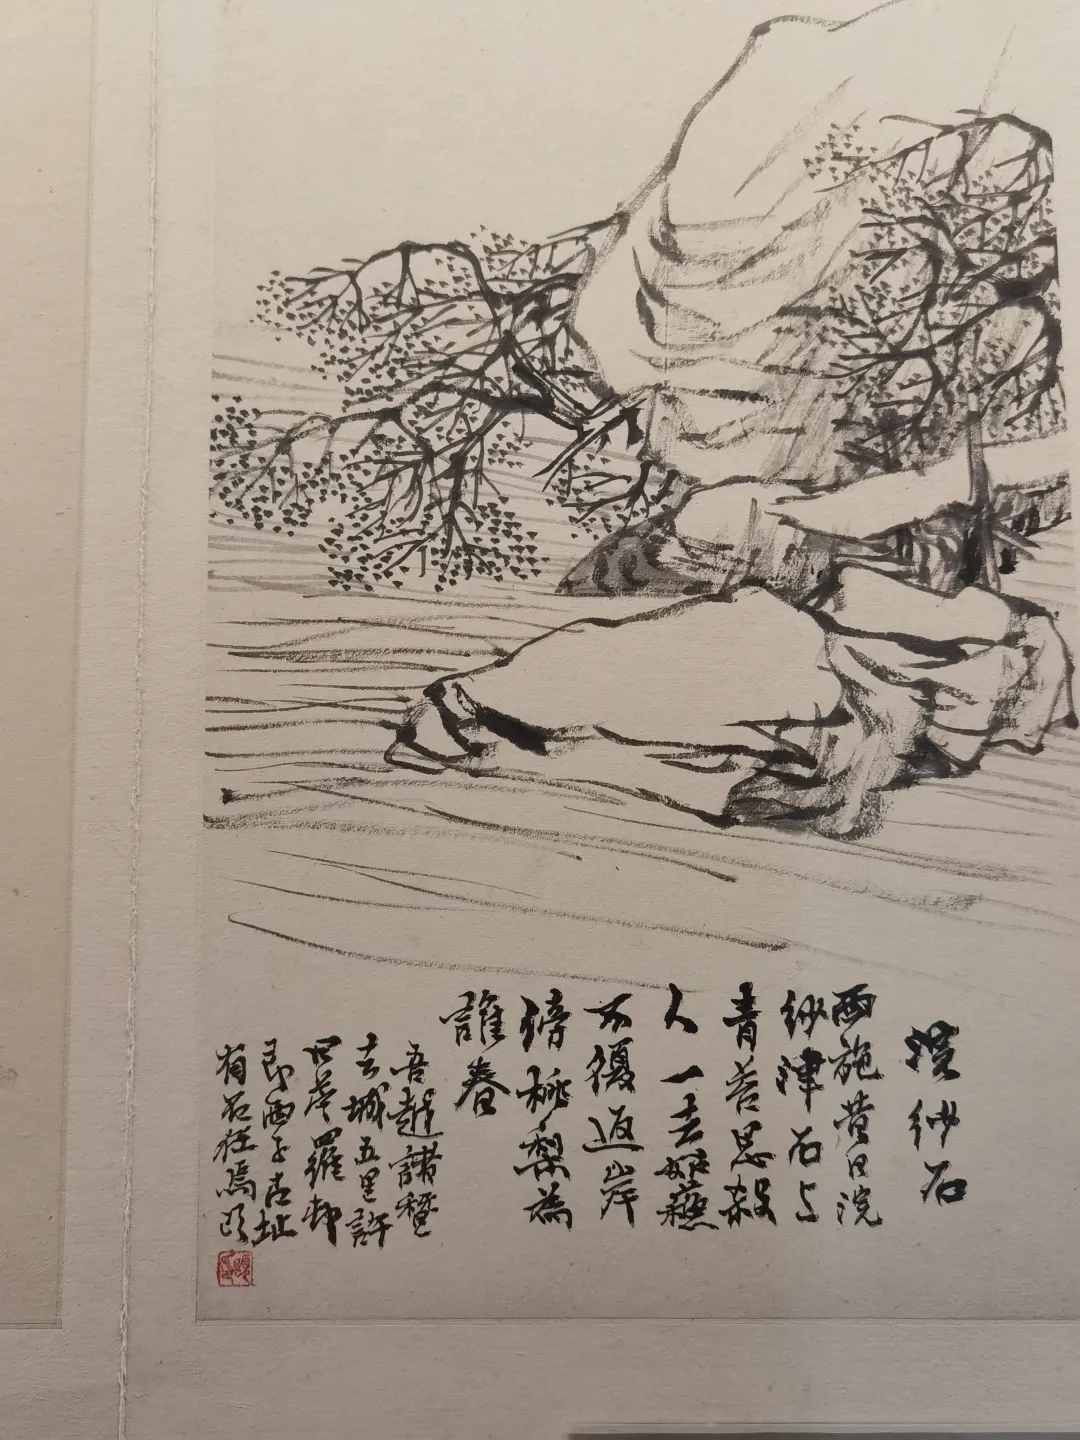 浣紗石
西施昔日浣
紗津石上
青苔思殺
人一去姑蘇
不復返岸
傍桃李為
誰春
吾越諸暨
去城五里許
曰苧羅邨
即西子古址
有石在焉